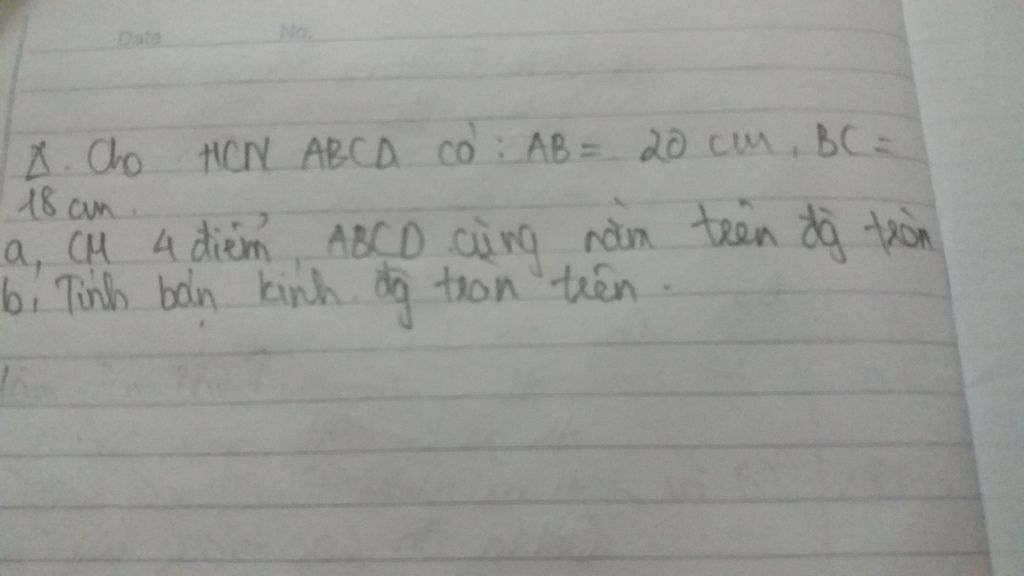 Date No.
1. Cho HCN ABCD có : AB = 20 cm, BC =
18 cm.
a, CM 4 điểm, ABCD cùng nằm trên đg tròn
b, Tính bán kính đg tròn trên.